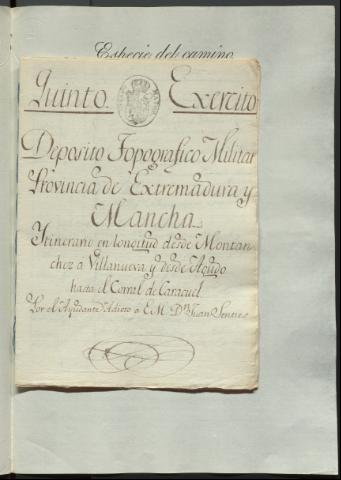 Especie del camino
Quinto Exercito
Deposito Topografico Militar
Provincia de Extremadura y
Mancha
Ytinerario en longitud desde Montan-
chez a Villanueva y desde Agudo
hasta el Corral de Caracuel
Por el Ayudante Adicto a E.M. Dn. Juan